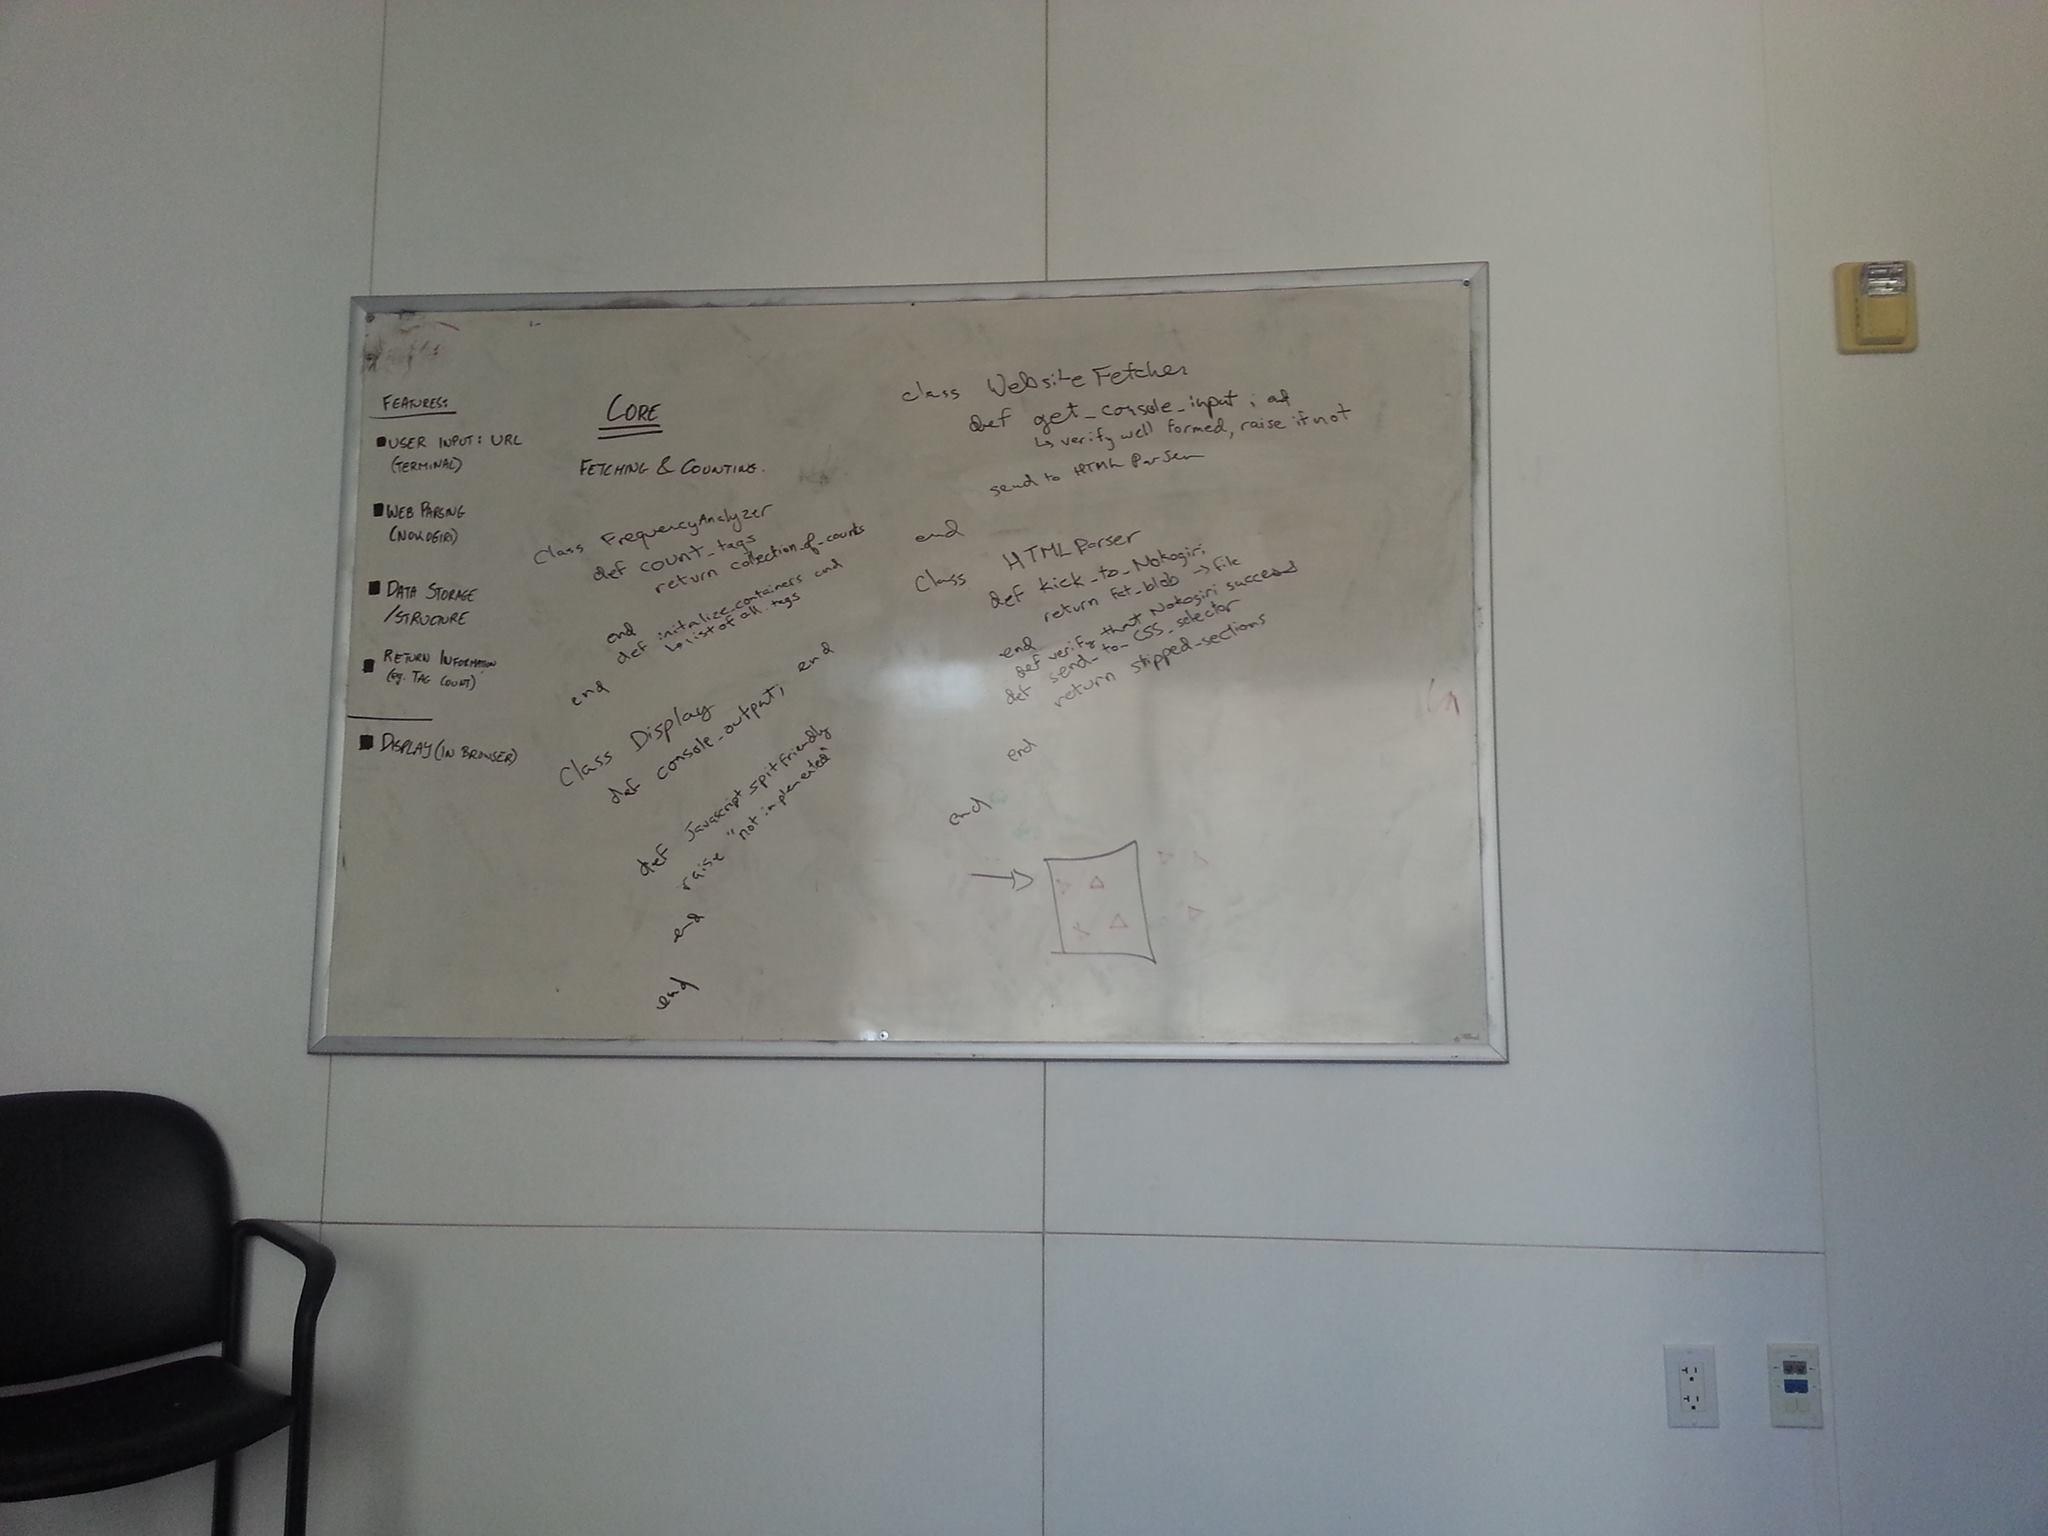 FEATURES:
USER INPUT: URL
(TERMINAL)
WEB PARSING
(NOKOGIRI)
DATA STORAGE
/STRUCTURE
RETURN INFORMATION
(eg. TAG COUNT)
DISPLAY (IN BROWSER)
CORE
FETCHING & COUNTING.
class FrequencyAnalyzer
def count_tags
return collection_of_counts
end
def initialize_containers end
↳ list of all tags
end
Class Display
def console_output; end
def Javascript_spitfriendly
raise "not implemented"
end
end
class WebsiteFetcher
def get_console_input; end
↳ verify well formed, raise if not
send to HTML Parser
end
Class HTMLParser
def kick_to_Nokogiri
return fet_blob → file
end
def verify that Nokogiri succeeed
def send_to_CSS_selector
return stipped_sections
end
end